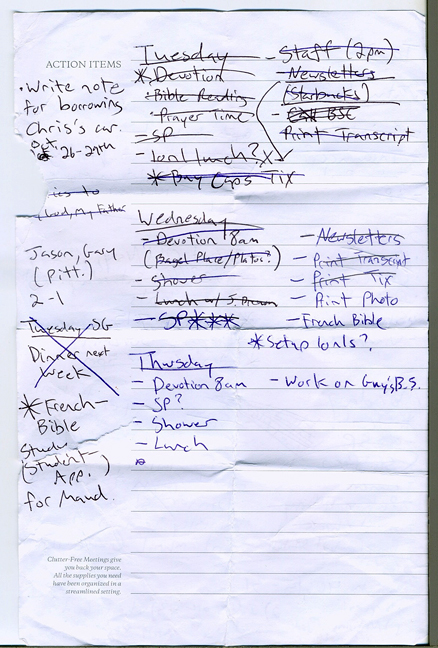 ACTION ITEMS
• Write note
for borrowing
Chris's car.
Oct.
26-29th
ies to
God, My Father
Jason, Gary
(Pitt.)
2-1
Tuesday SG
Dinner next
week
* French-
Bible
Study
(Student-
App.)
for Maud.
Clutter-Free Meetings give
you back your space.
All the supplies you need
have been organized in a
streamlined setting.
Tuesday
* Devotion
- Bible Reading
- Prayer Time
- SP
- 1on1 lunch?
* Buy Caps Tix
- Staff (2pm)
- Newsletters
(Starbucks)
- BSC
- Print Transcript
Wednesday
- Devotion 8am
(Bagel Place/Platos?)
- Shower
- Lunch w/ J.
- SP***
- Newsletters
- Print Transcript
- Print Tix
- Print Photo
- French Bible
* Setup 1on1s?
Thursday
- Devotion 8am
- SP?
- Shower
- Lunch
- Work on Guy's B.S.